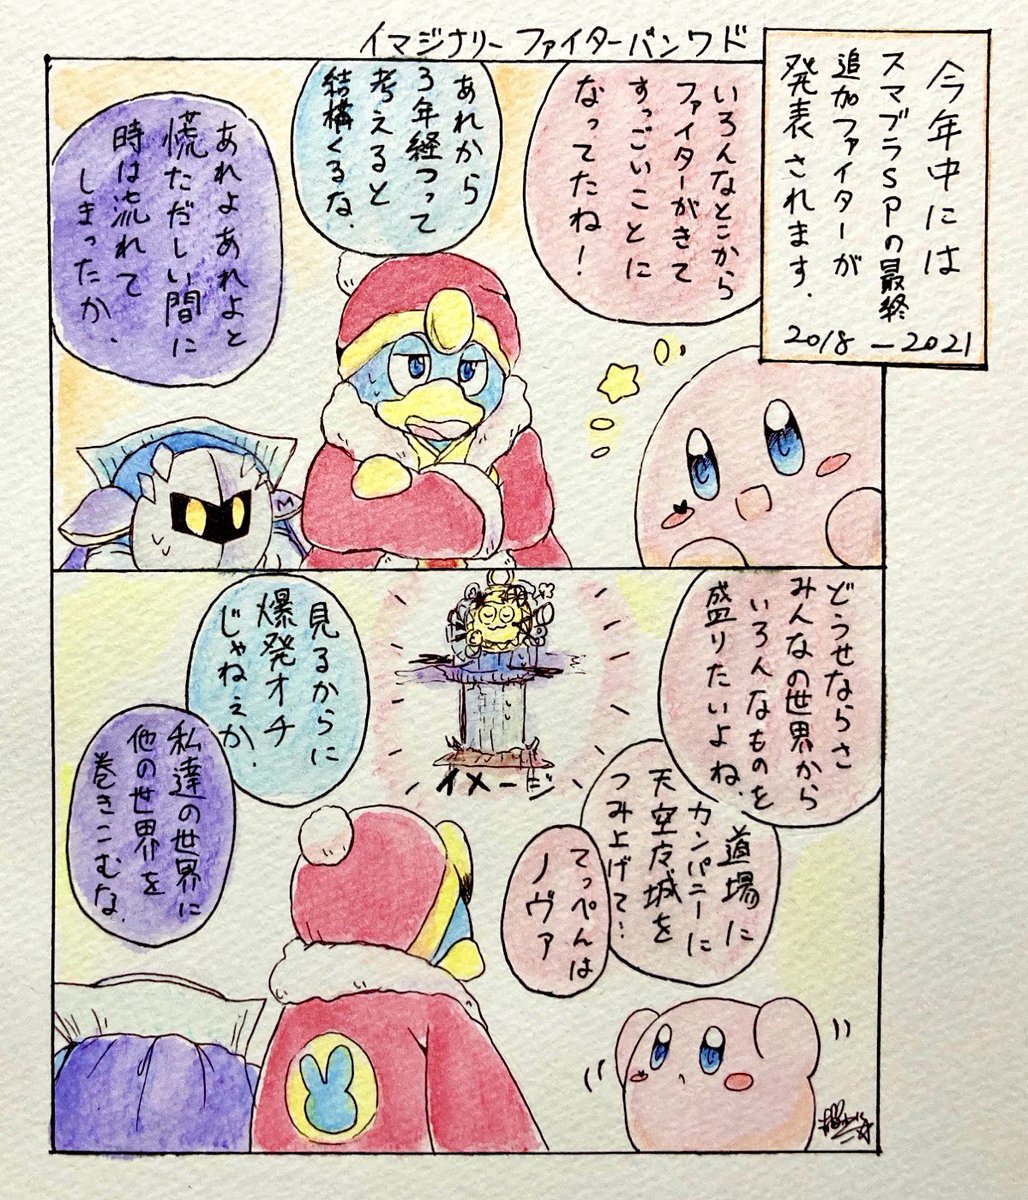 イマジナリーファイターバンワド
今年中には
スマブラSPの最終
追加ファイターが
発表されます.
2018-2021
いろんなとこから
ファイターがきて
すっごいことに
なってたね!
あれから
3年経つって
考えると
結構くるな.
あれよあれよと
慌ただしい間に
時は流れて
しまったか.
どうせならさ
みんなの世界から
いろんなものを
盛りたいよね.
道場に
カンパニーに
天空皮城を
つみ上げて…
てっぺんは
ノヴァ
イメージ
見るからに
爆発オチ
じゃねぇか.
私達の世界に
他の世界を
巻きこむな.